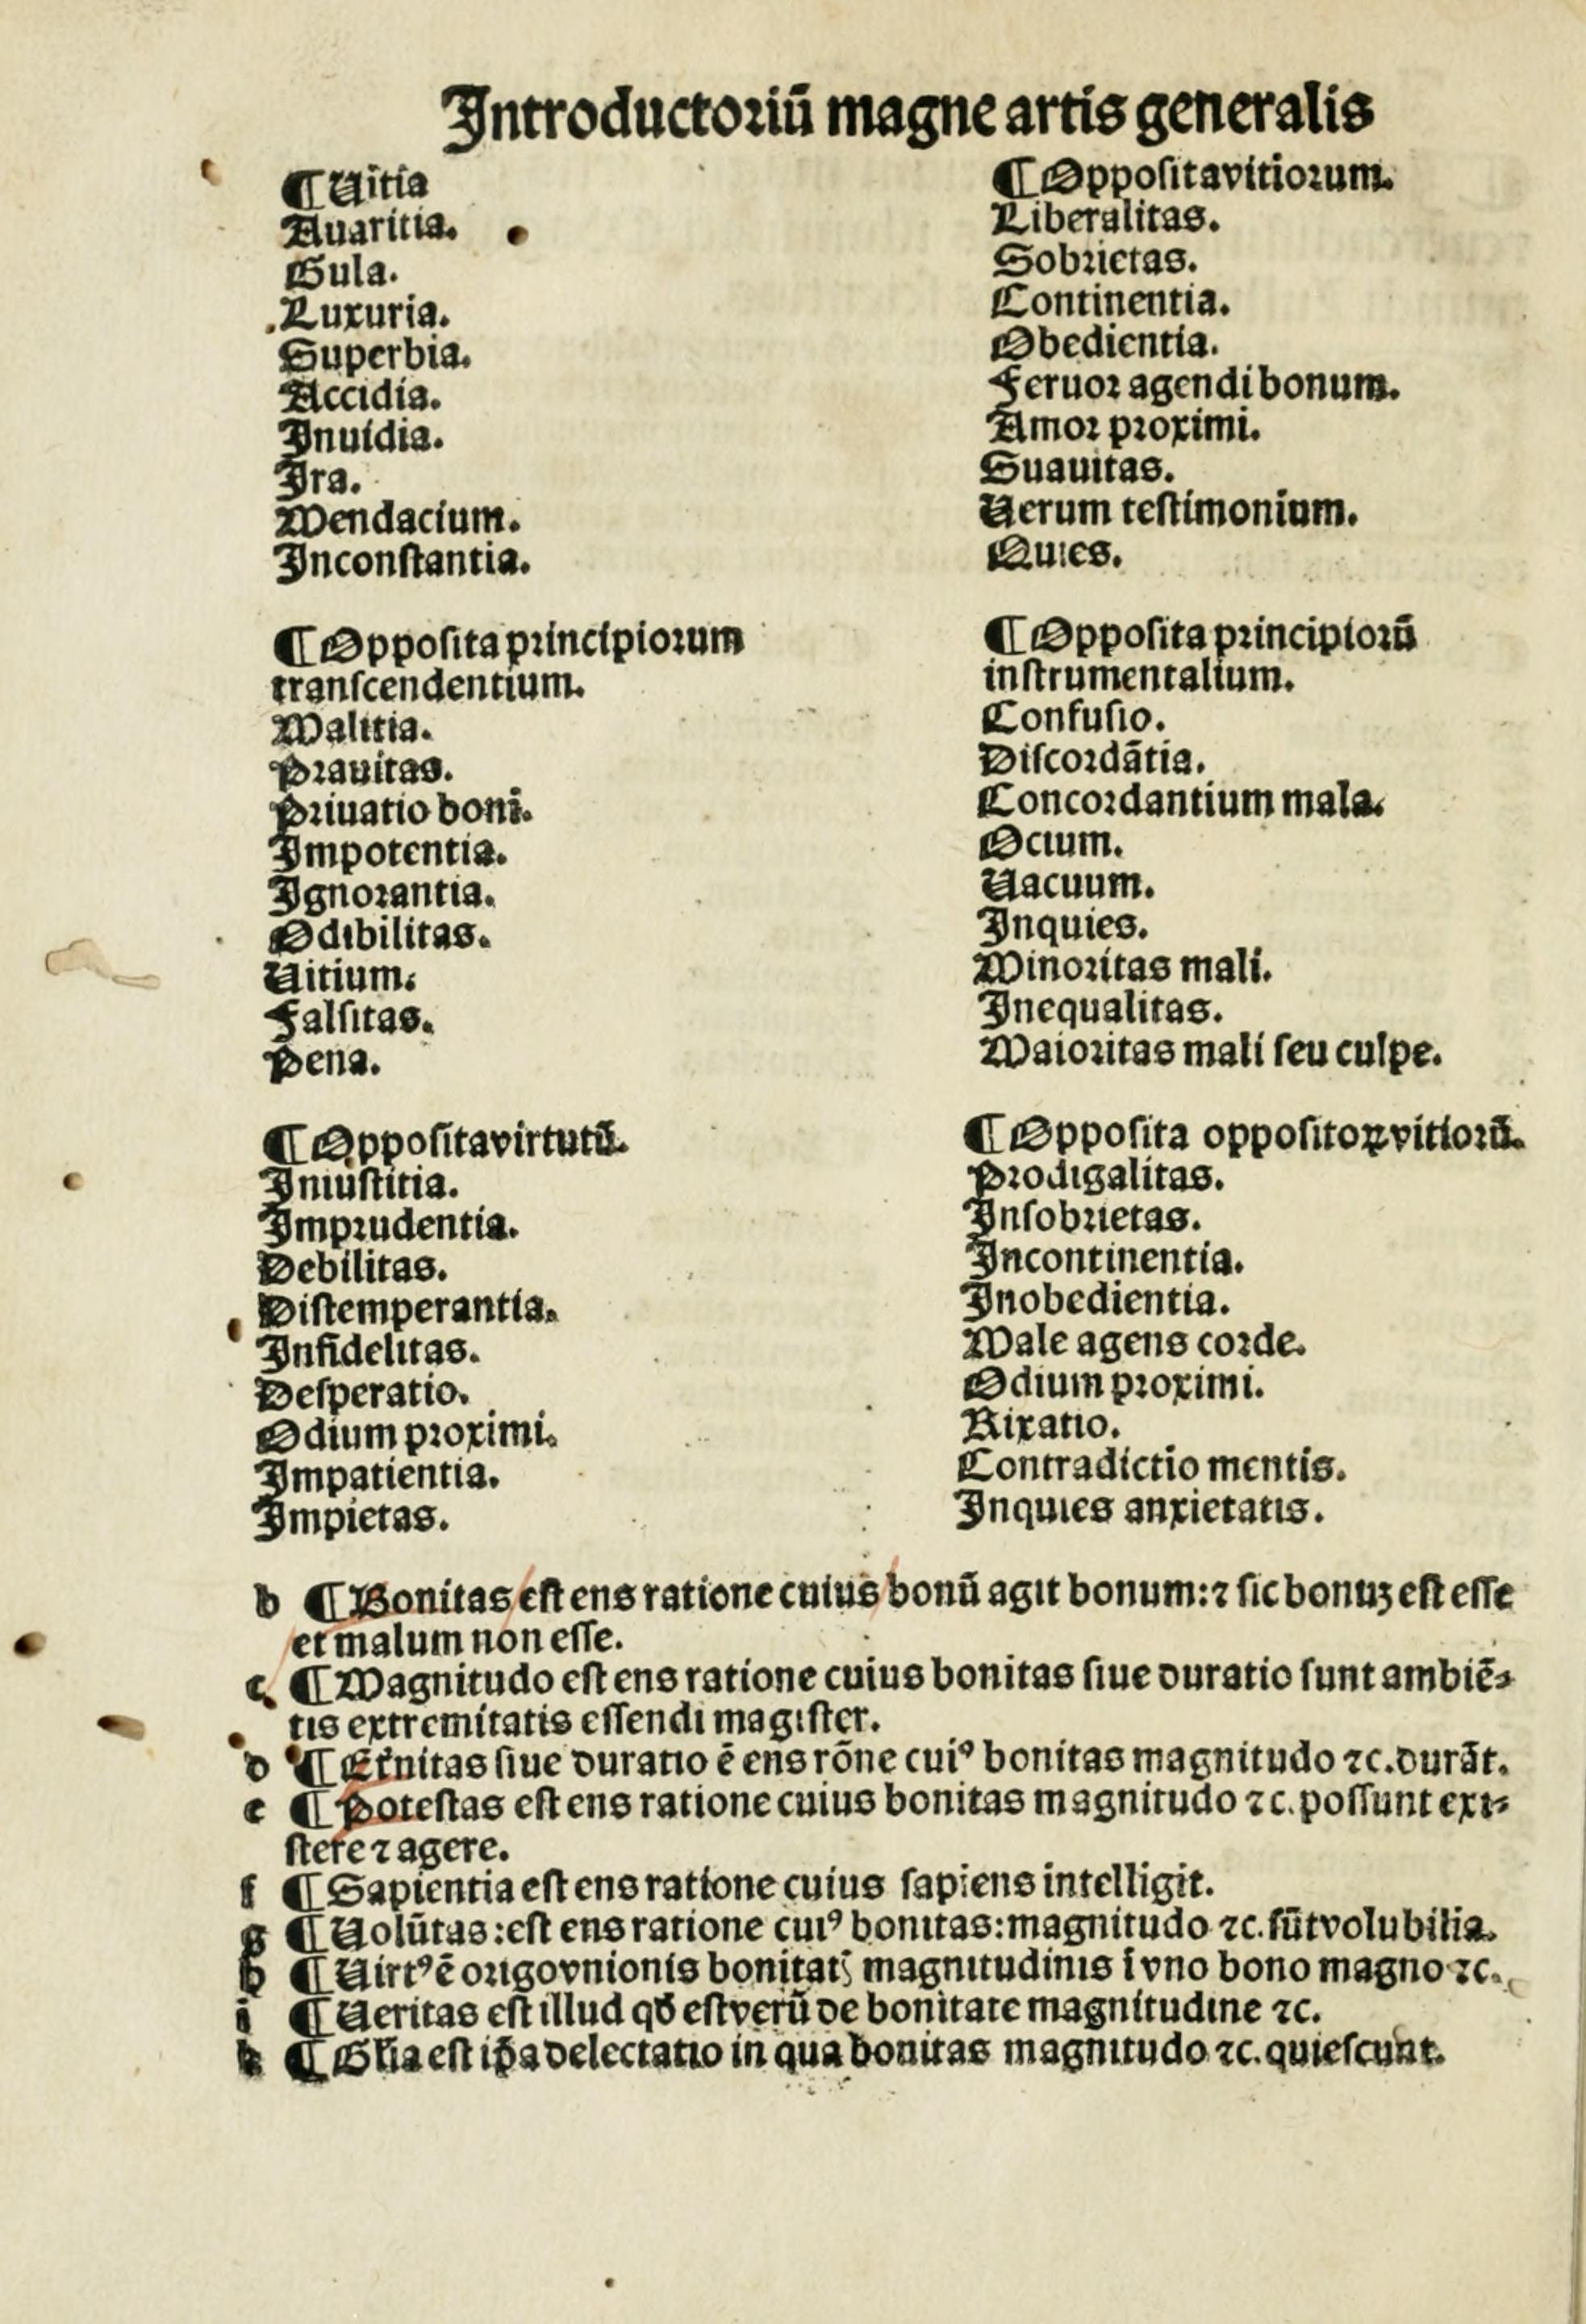 Introductoriũ magne artis generalis
¶ Uitia
Auaritia.
Gula.
Luxuria.
Superbia.
Accidia.
Inuidia.
Ira.
Mendacium.
Inconſtantia.
¶ Oppoſita vitiorum.
Liberalitas.
Sobrietas.
Continentia.
Obedientia.
Feruor agendi bonum.
Amor proximi.
Suauitas.
Uerum teſtimonium.
Quies.
¶ Oppoſita principiorum
tranſcendentium.
Malitia.
Prauitas.
Priuatio boni.
Impotentia.
Ignorantia.
Odibilitas.
Uitium.
Falſitas.
Pena.
¶ Oppoſita principiorũ
inſtrumentalium.
Confuſio.
Diſcordãtia.
Concordantium mala.
Ocium.
Uacuum.
Inquies.
Minoritas mali.
Inequalitas.
Maioritas mali ſeu culpe.
¶ Oppoſita virtutũ.
Iniuſtitia.
Imprudentia.
Debilitas.
Diſtemperantia.
Infidelitas.
Deſperatio.
Odium proximi.
Impatientia.
Impietas.
¶ Oppoſita oppoſitoꝝ vitiorũ.
Prodigalitas.
Inſobrietas.
Incontinentia.
Inobedientia.
Male agens corde.
Odium proximi.
Rixatio.
Contradictio mentis.
Inquies anxietatis.
b ¶ Bonitas eſt ens ratione cuius bonũ agit bonum: ⁊ ſic bonuꝫ eſt eſſe
et malum non eſſe.
c ¶ Magnitudo eſt ens ratione cuius bonitas ſiue duratio ſunt ambiẽ⸗
tis extremitatis eſſendi magiſter.
d ¶ Et̃nitas ſiue duratio ẽ ens rõne cuiꝰ bonitas magnitudo ⁊c. durãt.
e ¶ Poteſtas eſt ens ratione cuius bonitas magnitudo ⁊c. poſſunt exi⸗
ſtere ⁊ agere.
f ¶ Sapientia eſt ens ratione cuius ſapiens intelligit.
g ¶ Uolũtas: eſt ens ratione cuiꝰ bonitas: magnitudo ⁊c. ſũt volubilia.
h ¶ Uirtꝰ ẽ origo vnionis bonitatꝭ magnitudinis ĩ vno bono magno ⁊c.
i ¶ Ueritas eſt illud qđ eſt verũ de bonitate magnitudine ⁊c.
k ¶ Gl̃ia eſt ip̃a delectatio in qua bonitas magnitudo ⁊c. quieſcunt.